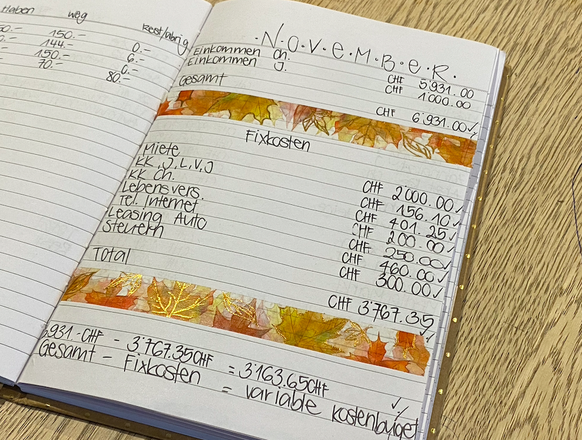 Haben weg Rest/übrig
150.- 0.-
144.- 6.-
150.- 0.-
70.- 80.-
·N·O·V·E·M·B·E·R·
Einkommen Ch. CHF 5'931.00
Einkommen J. CHF 1'000.00
Gesamt CHF 6'931.00✓
Fixkosten
Miete CHF 2'000.00✓
KK, J, L, V, J CHF 156.10✓
KK Ch. CHF 401.25✓
Lebensvers. CHF 200.00✓
Tel. Internet CHF 250.00✓
Leasing Auto CHF 460.00✓
Steuern CHF 300.00✓
Total CHF 3'767.35 ✓
6'931.-CHF - 3'767.35CHF = 3'163.65CHF ✓
Gesamt - Fixkosten = variable Kostenbudget ✓